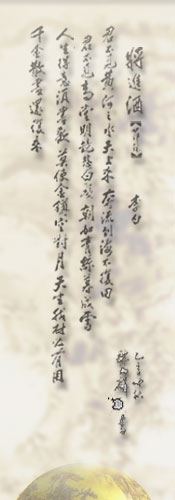 將進酒【節】
李白
君不見黃河之水天上來奔流到海不復回
君不見高堂明鏡悲白髮朝如青絲暮成雪
人生得意須盡歡莫使金樽空對月天生我材必有用
千金散盡還復來